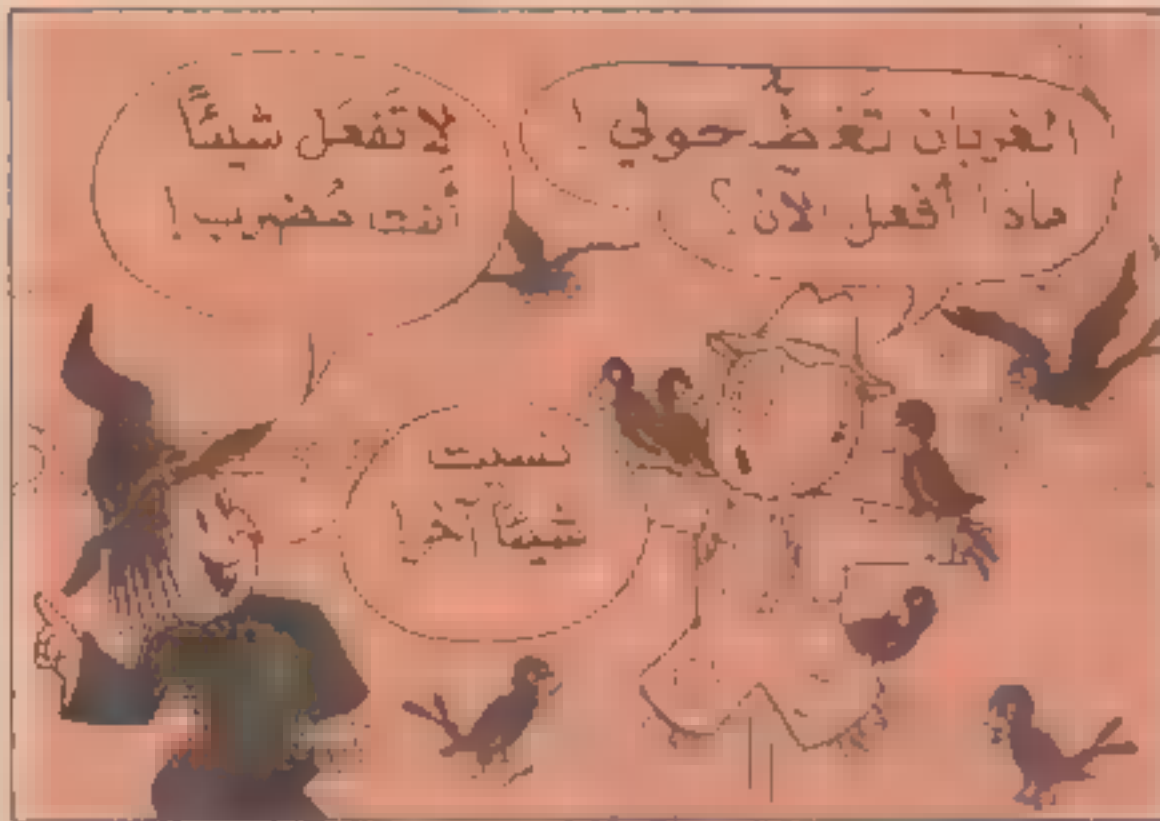 الغربان تَغطّ حولي !
ماذا أفعل الآن ؟
لا تَفعَل شيئاً
أنت مُضرب !
نسيت
شيئاً آخَر !